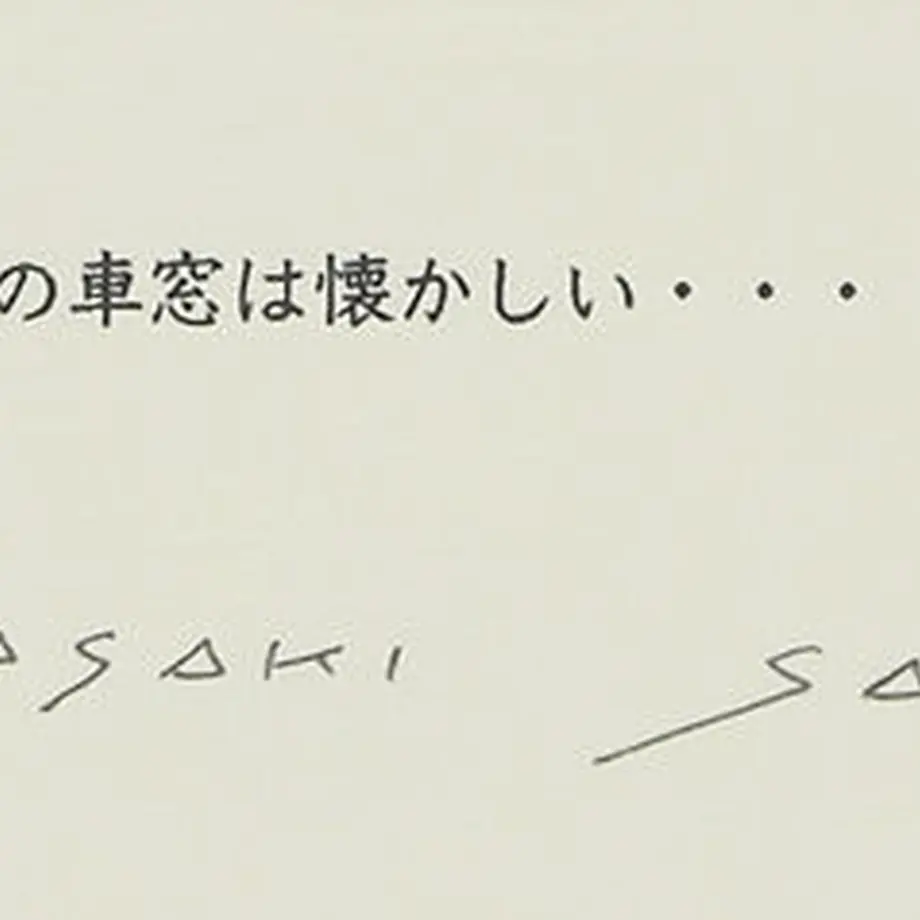 の車窓は懐かしい・・・
ASAKI SA